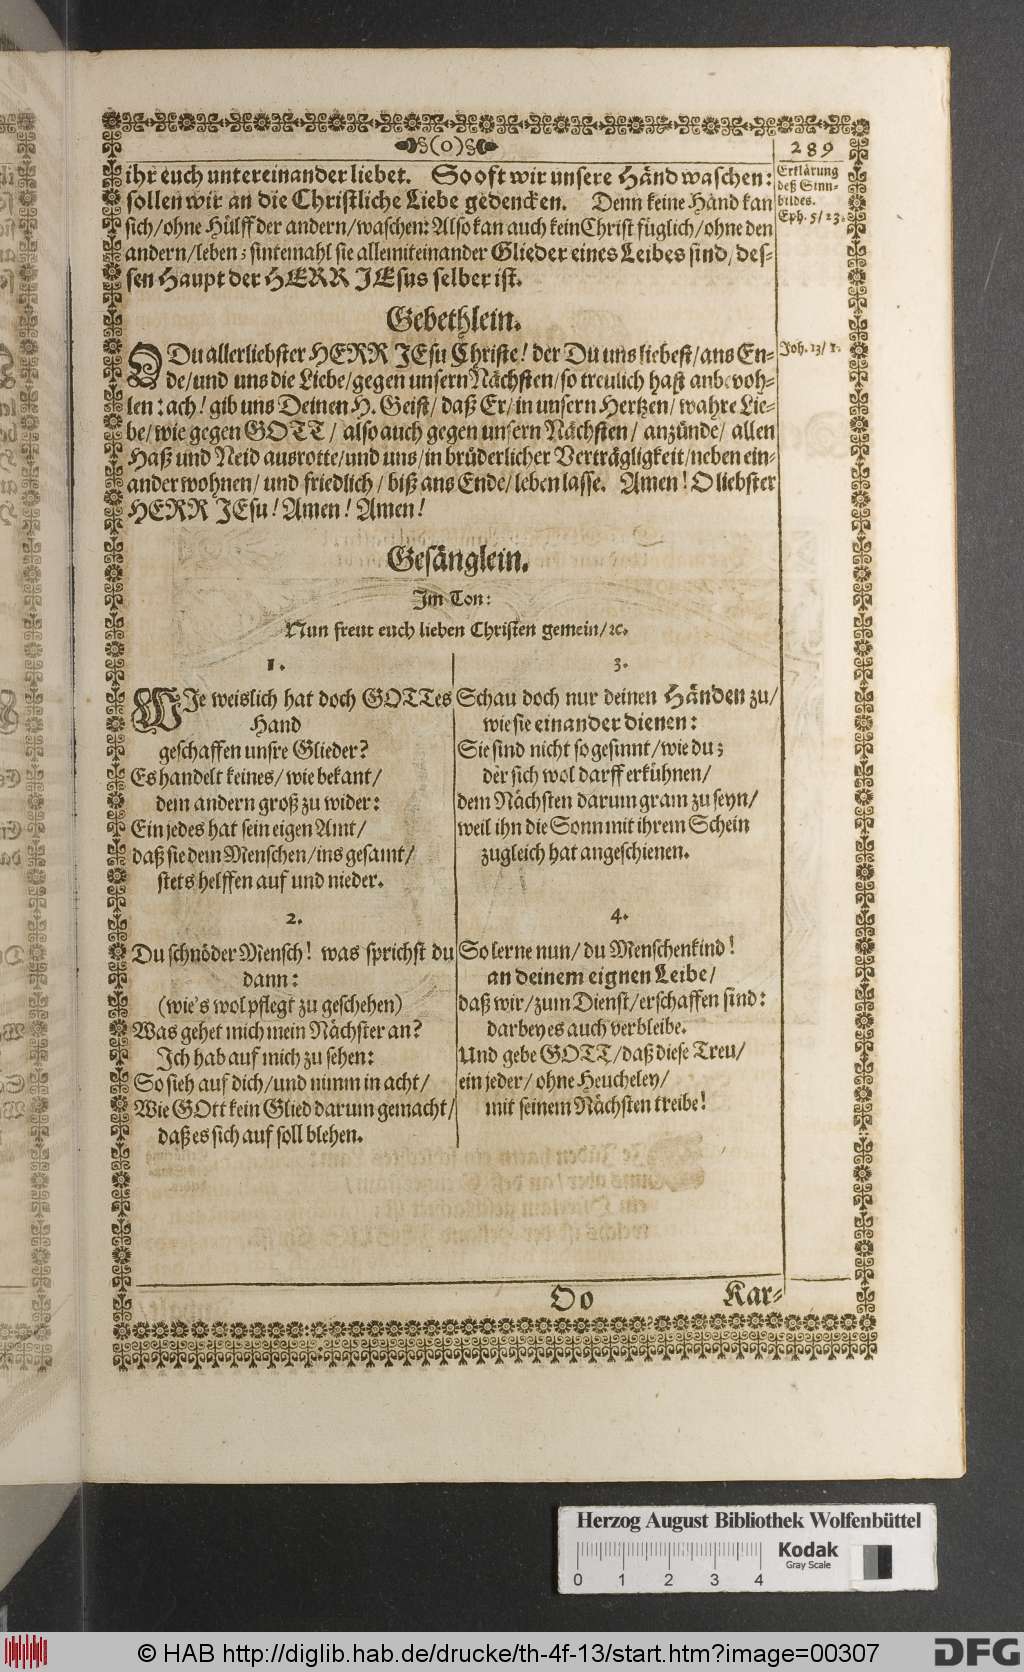 §(o)§
289
ihr euch untereinander liebet. So oft wir unsere Händ waschen:
sollen wir an die Christliche Liebe gedencken. Denn keine Händ kan
sich/ohne Hülff der andern/waschen: Also kan auch kein Christ füglich/ohne den
andern/leben; sintemahl sie alle miteinander Glieder eines Leibes sind/des-
sen Haupt der HERR JEsus selber ist.
Erklärung
deß Sinn-
bildes.
Eph. 5/23.
Gebethlein.
O Du allerliebster HERR JEsu Christe! der Du uns liebest/ans En-
de/und uns die Liebe/gegen unsern Nächsten/so treulich hast anbevoh-
len: ach! gib uns Deinen H. Geist/daß Er/in unsern Hertzen/wahre Lie-
be/wie gegen GOTT/also auch gegen unsern Nächsten/anzünde/allen
Haß und Neid ausrotte/und uns/in brüderlicher Verträgligkeit/neben ein-
ander wohnen/und friedlich/biß ans Ende/leben lasse. Amen! O liebster
HERR JEsu! Amen! Amen!
Joh. 13/1.
Gesänglein.
Im Ton:
Nun freut euch lieben Christen gemein/ꝛc.
1.
WIe weislich hat doch GOTTes
Hand
geschaffen unsre Glieder?
Es handelt keines/wie bekant/
dem andern groß zu wider:
Ein jedes hat sein eigen Amt/
daß sie dem Menschen/ins gesamt/
stets helffen auf und nieder.
2.
Du schnöder Mensch! was sprichst du
dann:
(wie's wol pflegt zu geschehen)
Was gehet mich mein Nächster an?
Ich hab auf mich zu sehen:
So sieh auf dich/und nimm in acht/
Wie GOtt kein Glied darum gemacht/
daß es sich auf soll blehen.
3.
Schau doch nur deinen Händen zu/
wie sie einander dienen:
Sie sind nicht so gesinnt/wie du;
der sich wol darff erkühnen/
dem Nächsten darum gram zu seyn/
weil ihn die Sonn mit ihrem Schein
zugleich hat angeschienen.
4.
So lerne nun/du Menschenkind!
an deinem eignen Leibe/
daß wir/zum Dienst/erschaffen sind:
darbey es auch verbleibe.
Und gebe GOTT/daß diese Treu/
ein jeder/ohne Heucheley/
mit seinem Nächsten treibe!
Oo
Kar-
Herzog August Bibliothek Wolfenbüttel
0 1 2 3 4
Kodak
Gray Scale
© HAB http://diglib.hab.de/drucke/th-4f-13/start.htm?image=00307
DFG